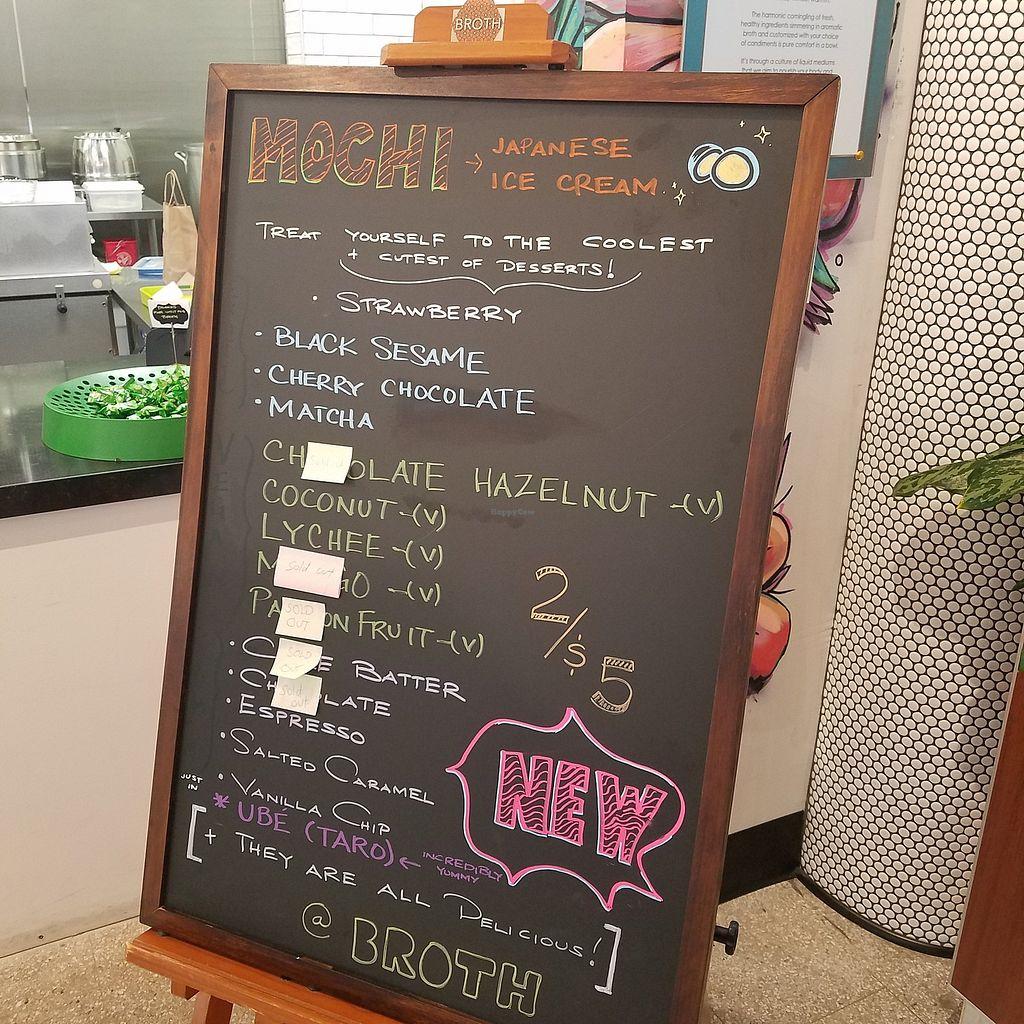 BROTH
The harmonic comingling of fresh,
healthy ingredients simmering in aromatic
broth and customized with your choice
of condiments is pure comfort in a bowl.
It's through a culture of liquid mediums
that we aim to nourish your body and
MOCHI → JAPANESE
ICE CREAM
TREAT YOURSELF TO THE COOLEST
+ CUTEST OF DESSERTS!
• STRAWBERRY
• BLACK SESAME
• CHERRY CHOCOLATE
• MATCHA
CH OLATE HAZELNUT -(V)
Sold out
COCONUT -(V)
LYCHEE -(V)
M GO -(V)
Sold out
PA ON FRUIT -(V)
SOLD
OUT
• C E BATTER
SOLD
OUT
• CH LATE
Sold
out
• ESPRESSO
• SALTED CARAMEL
• VANILLA CHIP
JUST
IN
* UBÉ (TARO) ← INCREDIBLY
YUMMY
[+ THEY ARE ALL DELICIOUS!]
@ BROTH
2/$5
NEW
HappyCow